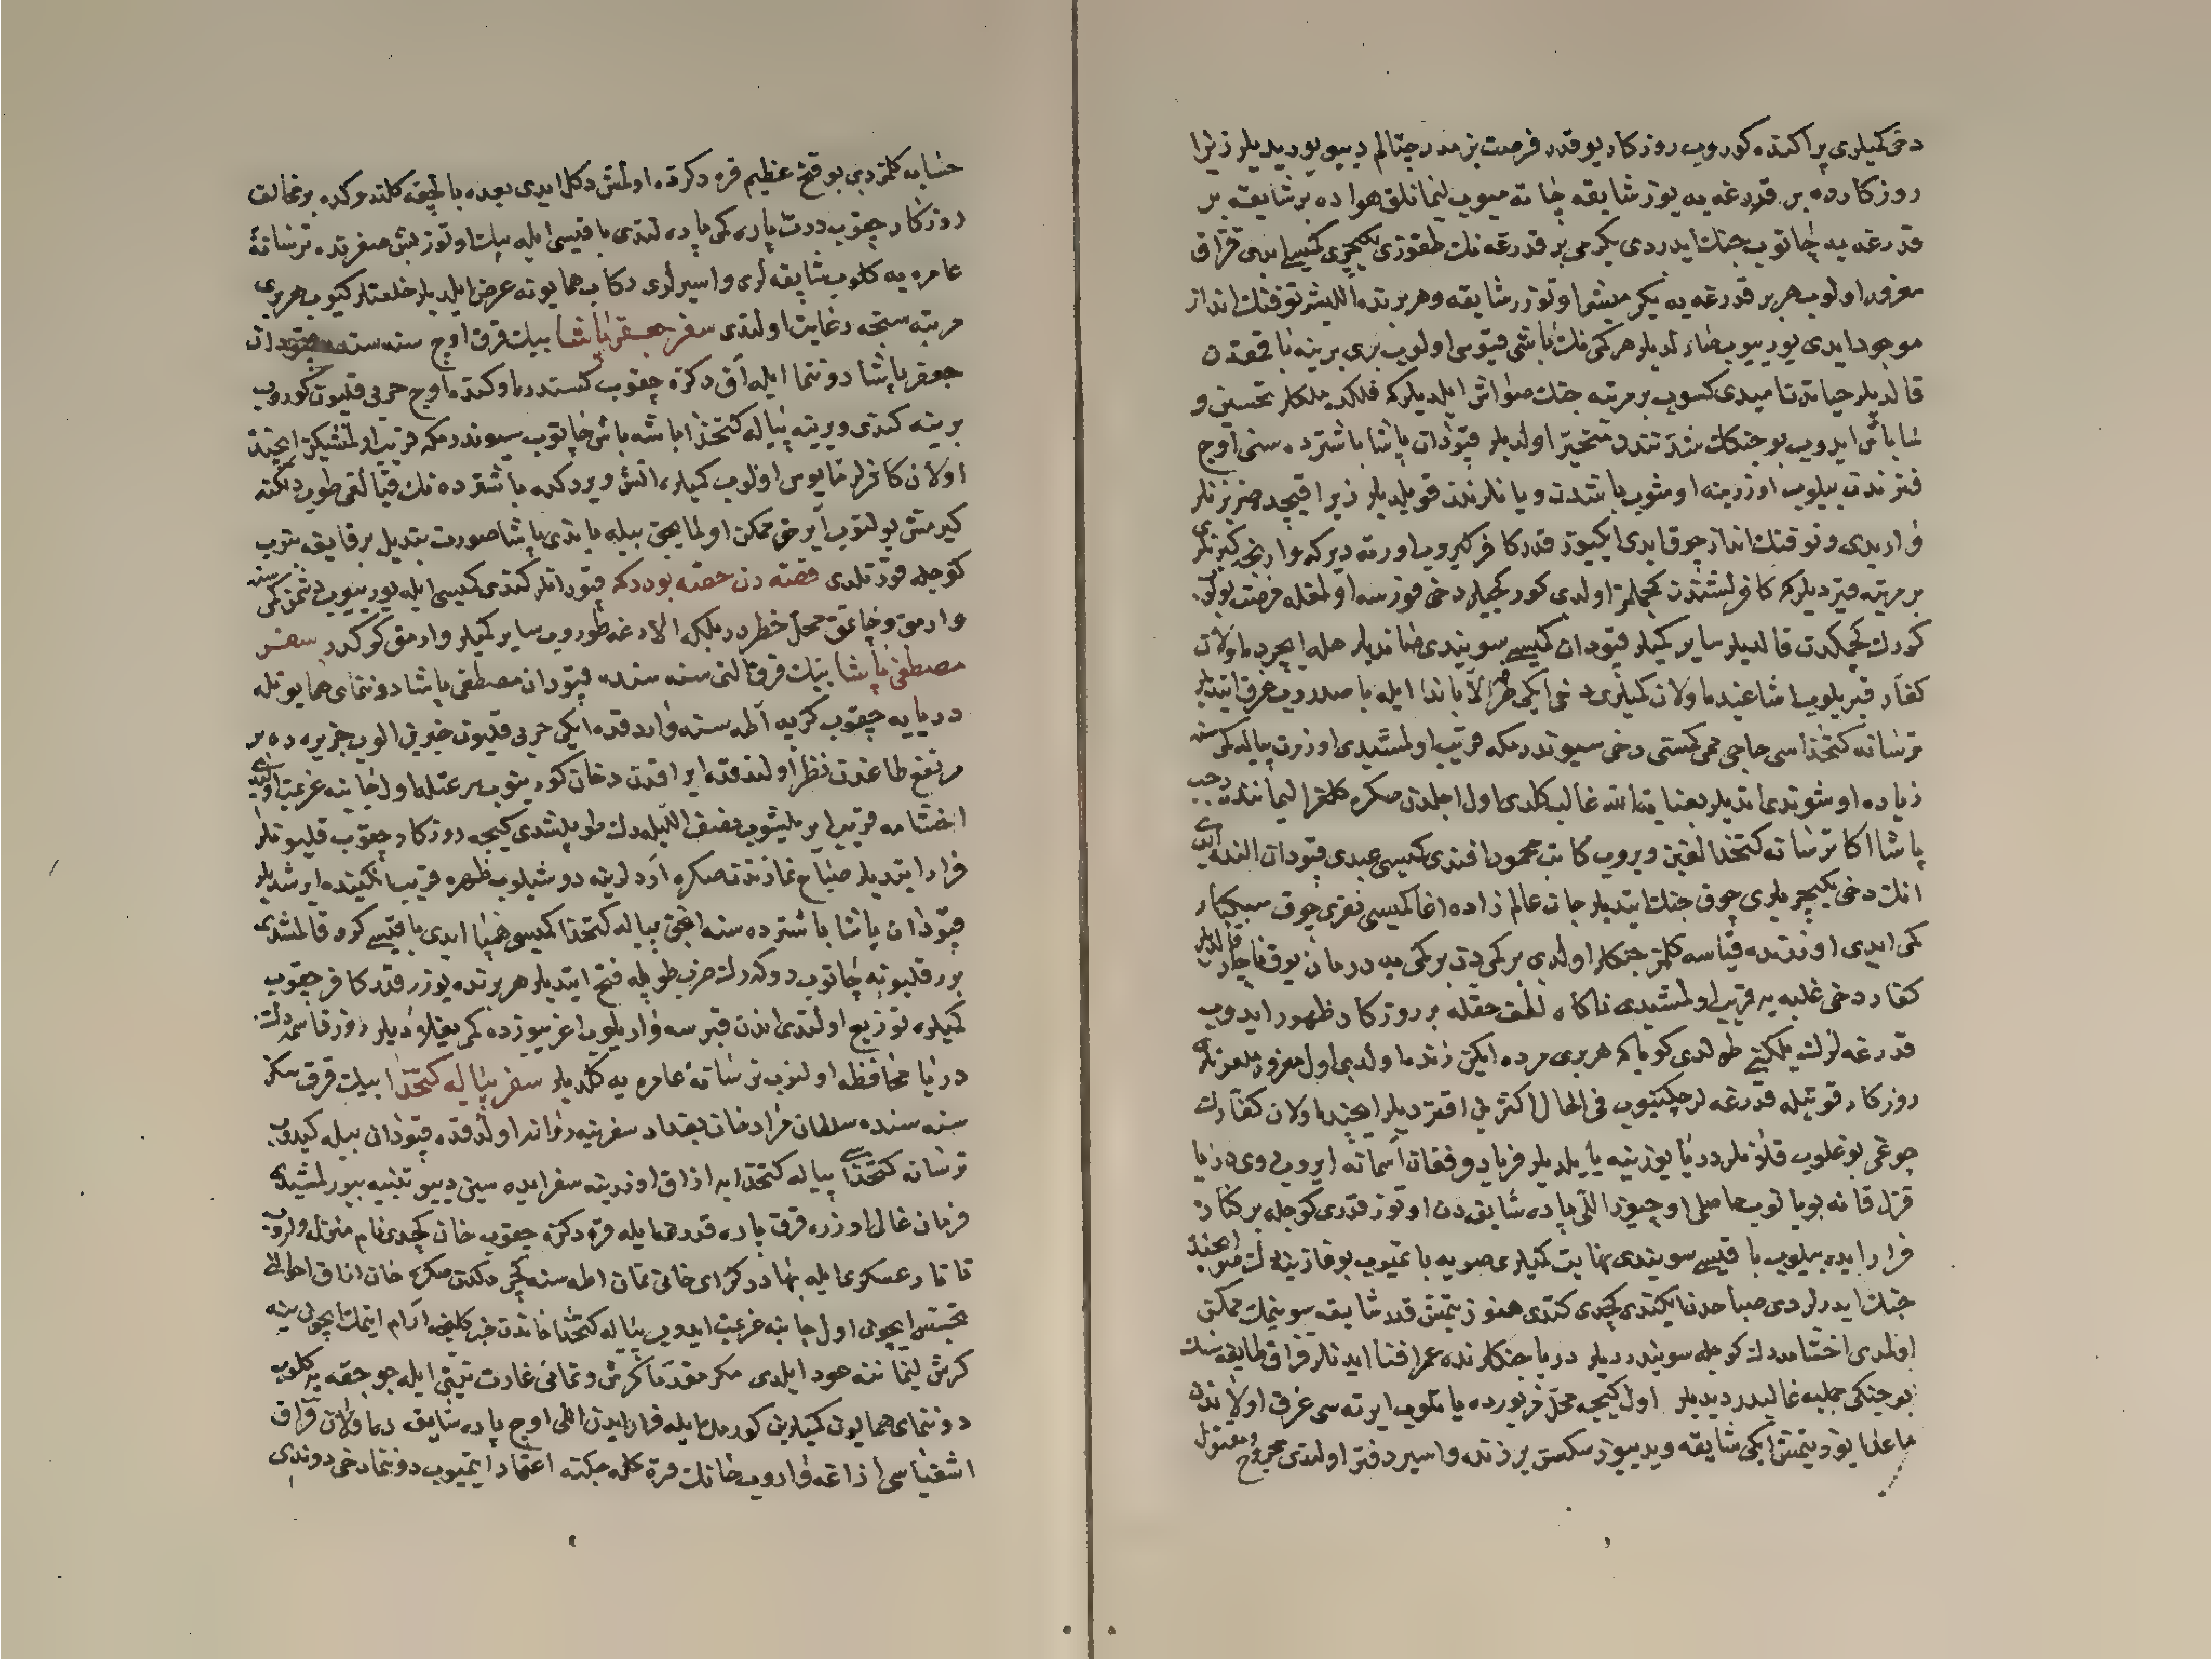 دخی کمیلری پراکنده کوروب روزکار یوقدر فرصت بزمدر چتالم دییو یوریدیلر زیرا
روزکارده بر قدرغه یه یوز شایقه چاته میوب لیمانلق هواده بر شایقه بر
قدرغه یه چاتوب جنك ایدردی یکرمی بر قدرغه نك طقوزی یکیچری کمیسی ایدی قزاق
مغرور اولوب هر بر قدرغه یه یکرمیشر اوتوزر شایقه و هر برنده اللیشر توفنك انداز
موجود ایدی یورییوب صاردیلر هر کمی نك باشی قیوسی اولوب بری برینه باقمقدن
قالدیلر حیاتدن امیدی کسوب بر مرتبه جنك صواش ایلدیلر که فلکده ملکلر تحسین و
شاباش ایدوب بو جنكك شدتندن متحیر اولدیلر قپودان پاشا باشترده سنی اوج
فنرندن بیلوب اوزرینه اوشوب باشدن و یانلرندن قویلدیلر زیرا قیچده ضربزنلر
وار ایدی و توفنك انداز چوق ایدی ایکیوز قدر کافر کیروب اورته دیرکه وارنجه کیرنلری
بر مرتبه قیردیلر که کافر لشندن کچلمز اولدی کورکجیلر دخی فورسه اولمغله فرصت بولوب
کورك چکمکدن قالدیلر سایر کمیلر قپودان کمیسی سویندی صاندیلر هله ایچرده اولان
کفار قیریلوب اشاغیده اولان کمیلری دخی ایکی طرفدن الاباندا ایله باصدروب غرق ایتدیلر
ترسانه کتخداسی حاجی ممی کمیسی دخی سیوندرمکه قریب اولمشیدی اوزون پیاله کمیسنه
زیاده اوشوندی ایتدیلر بعنایة الله غالب کلدی اول اجلدن صکره کلغرا لیماننده رجب
پاشا اکا ترسانه کتخدالغین ویروب کاتب محمود افندی کمیسی عبدی قپودان النده ایدی
انك دخی یکیچریلری چوق جنك ایتدیلر جان عالم زاده اغا کمیسی نفری چوق سبکبار
کمی ایدی اوزرنده قیاسه کلمز جنکلر اولدی بر کمی دن بر کمی یه درمان یوق ناچار قالدیلر
کفار دخی غلبه یه قریب اولمشیدی ناکاه لطف حقله بر روزکار ظهور ایدوب
قدرغه لرك یلکنی طولدی کویا که هر بری مرده ایکن زنده اولدی اول مغرور ملعونلری
روزکار قوتیله قدرغه لر چکینوب فی الحال اکثرین اقتردیلر ایچنده اولان کفارك
چوغی بوغلوب قلانلر دریا یوزینه یایلدیلر فریاد و فغان آسمانه ایروب روی دریا
قزل قانه بویانوب حاصلی اوچیوز اللی پاره شایقه دن اوتوز قدری کوجله بر کناره
فرار ایده بیلوب باقیسی سویندی نهایت کمیلری صویه باتمیوب بوغازینه دك صو ایچنده
جنك ایدرلردی صباحدن ایکندی کچدی کتدی هنوز یتمش قدر شایقه سوینمك ممکن
اولمدی اختشامه دك کوجله سویندردیلر دریا جنکلرنده عمر افنا ایدنلر قزاق طایفه سنك
بو جنکی جمله یه غالبدر دیدیلر اول کیجه محل مزبورده یاتلوب ایرته سی غرق اولاندن
ماعدا یوز یتمش ایکی شایقه و یدییوز سکسن بر زنده و اسیر دفتر اولندی مجروح و مقتول
حسابه کلمزدی بو فتح عظیم قره دکزده اولمش دکل ایدی بعده بالچغه کلندوکده بر مخالف
روزکار چقوب درت پاره کمی پاره لندی باقیسی ایله بیك اوتوز بش صفرنده ترسانهٔ
عامره یه کلوب شایقه لری و اسیرلری رکاب همایونه عرض ایلدیلر خلعتلر کیوب هر بری
مرتبه سنجه رعایت اولندی سفر جعفر پاشا بیك قرق اوچ سنه سنده قپودان
جعفر پاشا دونانما ایله آق دکزه چقوب کستندره اوکنده اوچ حربی قلیون کوروب
برینه کندی و برینه پیاله کتخدا باشه باش چاتوب سیوندرمکه قریب اولمشیکن ایچنده
اولان کافرلر مأیوس اولوب کمیلره اتش ویردکده باشترده نك قپالقی طوپ دلکنه
کیرمش بولنوب آیرمق ممکن اولمایجق بیله یاندی پاشا صورت تبدیل بر قایغه بنوب
کوجله قورتلدی قصه دن حصه بودر که قپودانلر کندی کمیسی ایله یورییوب دشمن کمیسنه
وارمق و چاتمق محل خطر در بلکه الارغه طوروب سایر کمیلر وارمق کرکدر سفر
مصطفی پاشا بیك قرق التی سنه سنده قپودان مصطفی پاشا دوننمای همایونله
دریایه چقوب کزیه آطه سنه وارد قده ایکی حربی قلیون خبرین الوب جزیره ده بر
مرتفع طاغدن نظر اولندقده ایراقدن دخان کورینوب سرعتله اول جانبه عزیمت اولندی
اختشامه قریب ایریلیشوب نصف اللیله دك طوپلشدی کیجه روزکار چقوب قلیونلر
فرار ایتدیلر صباح نمازندن صکره آردلرینه دوشیلوب ظهره قریب انکینده ایرشدیلر
قپودان پاشا باشترده سنه انجق پیاله کتخدا کمیسی همپا ایدی باقیسی کرو قالمشدی
برر قلیونه چاتوب دوکه رك ضرب طوپله فتح ایتدیلر هر برنده یوزر قدر کافر چقوب
کمیلره توزیع اولندی اندن قبرسه واریلوب اغریبوزده کمی یغلادیلر روز قاسمه دك
دریا محافظه اولنوب ترسانهٔ عامره یه کلدیلر سفر پیاله کتخدا بیك قرق سکز
سنه سنده سلطان مراد خان بغداد سفرینه روانه اولدقده قپودان بیله کیدوب
ترسانه کتخداسی پیاله کتخدایه ازاق اوزرینه سفر ایده سین دییو تنبیه بیورلمشیدی
فرمان عالی اوزره قرق پاره قدرغه ایله قره دکزه چقوب خان کچدی نام منزله واروب
تاتار عسکری ایله بهادر کرای خانی تمان اطه سنه کچردکدن صکره خان ازاق احوالن
تجسس ایچون اول جانبه عزیمت ایدوب پیاله کتخدا خاندن خبر کلنجه ارام ایتمك ایچون ینه
کرش لیماننه عود ایلدی مکر مقدما کرش و تمانی غارت نیتی ایله چوچقه یه کلوب
دوننمای همایون کمیلرین کورمکله فرار ایدن اللی اوچ پاره شایقه ده اولان قزاق
اشقیاسی ازاغه واروب خانك قره کله جکنه اعتماد ایتمیوب دوننما دخی دوندی